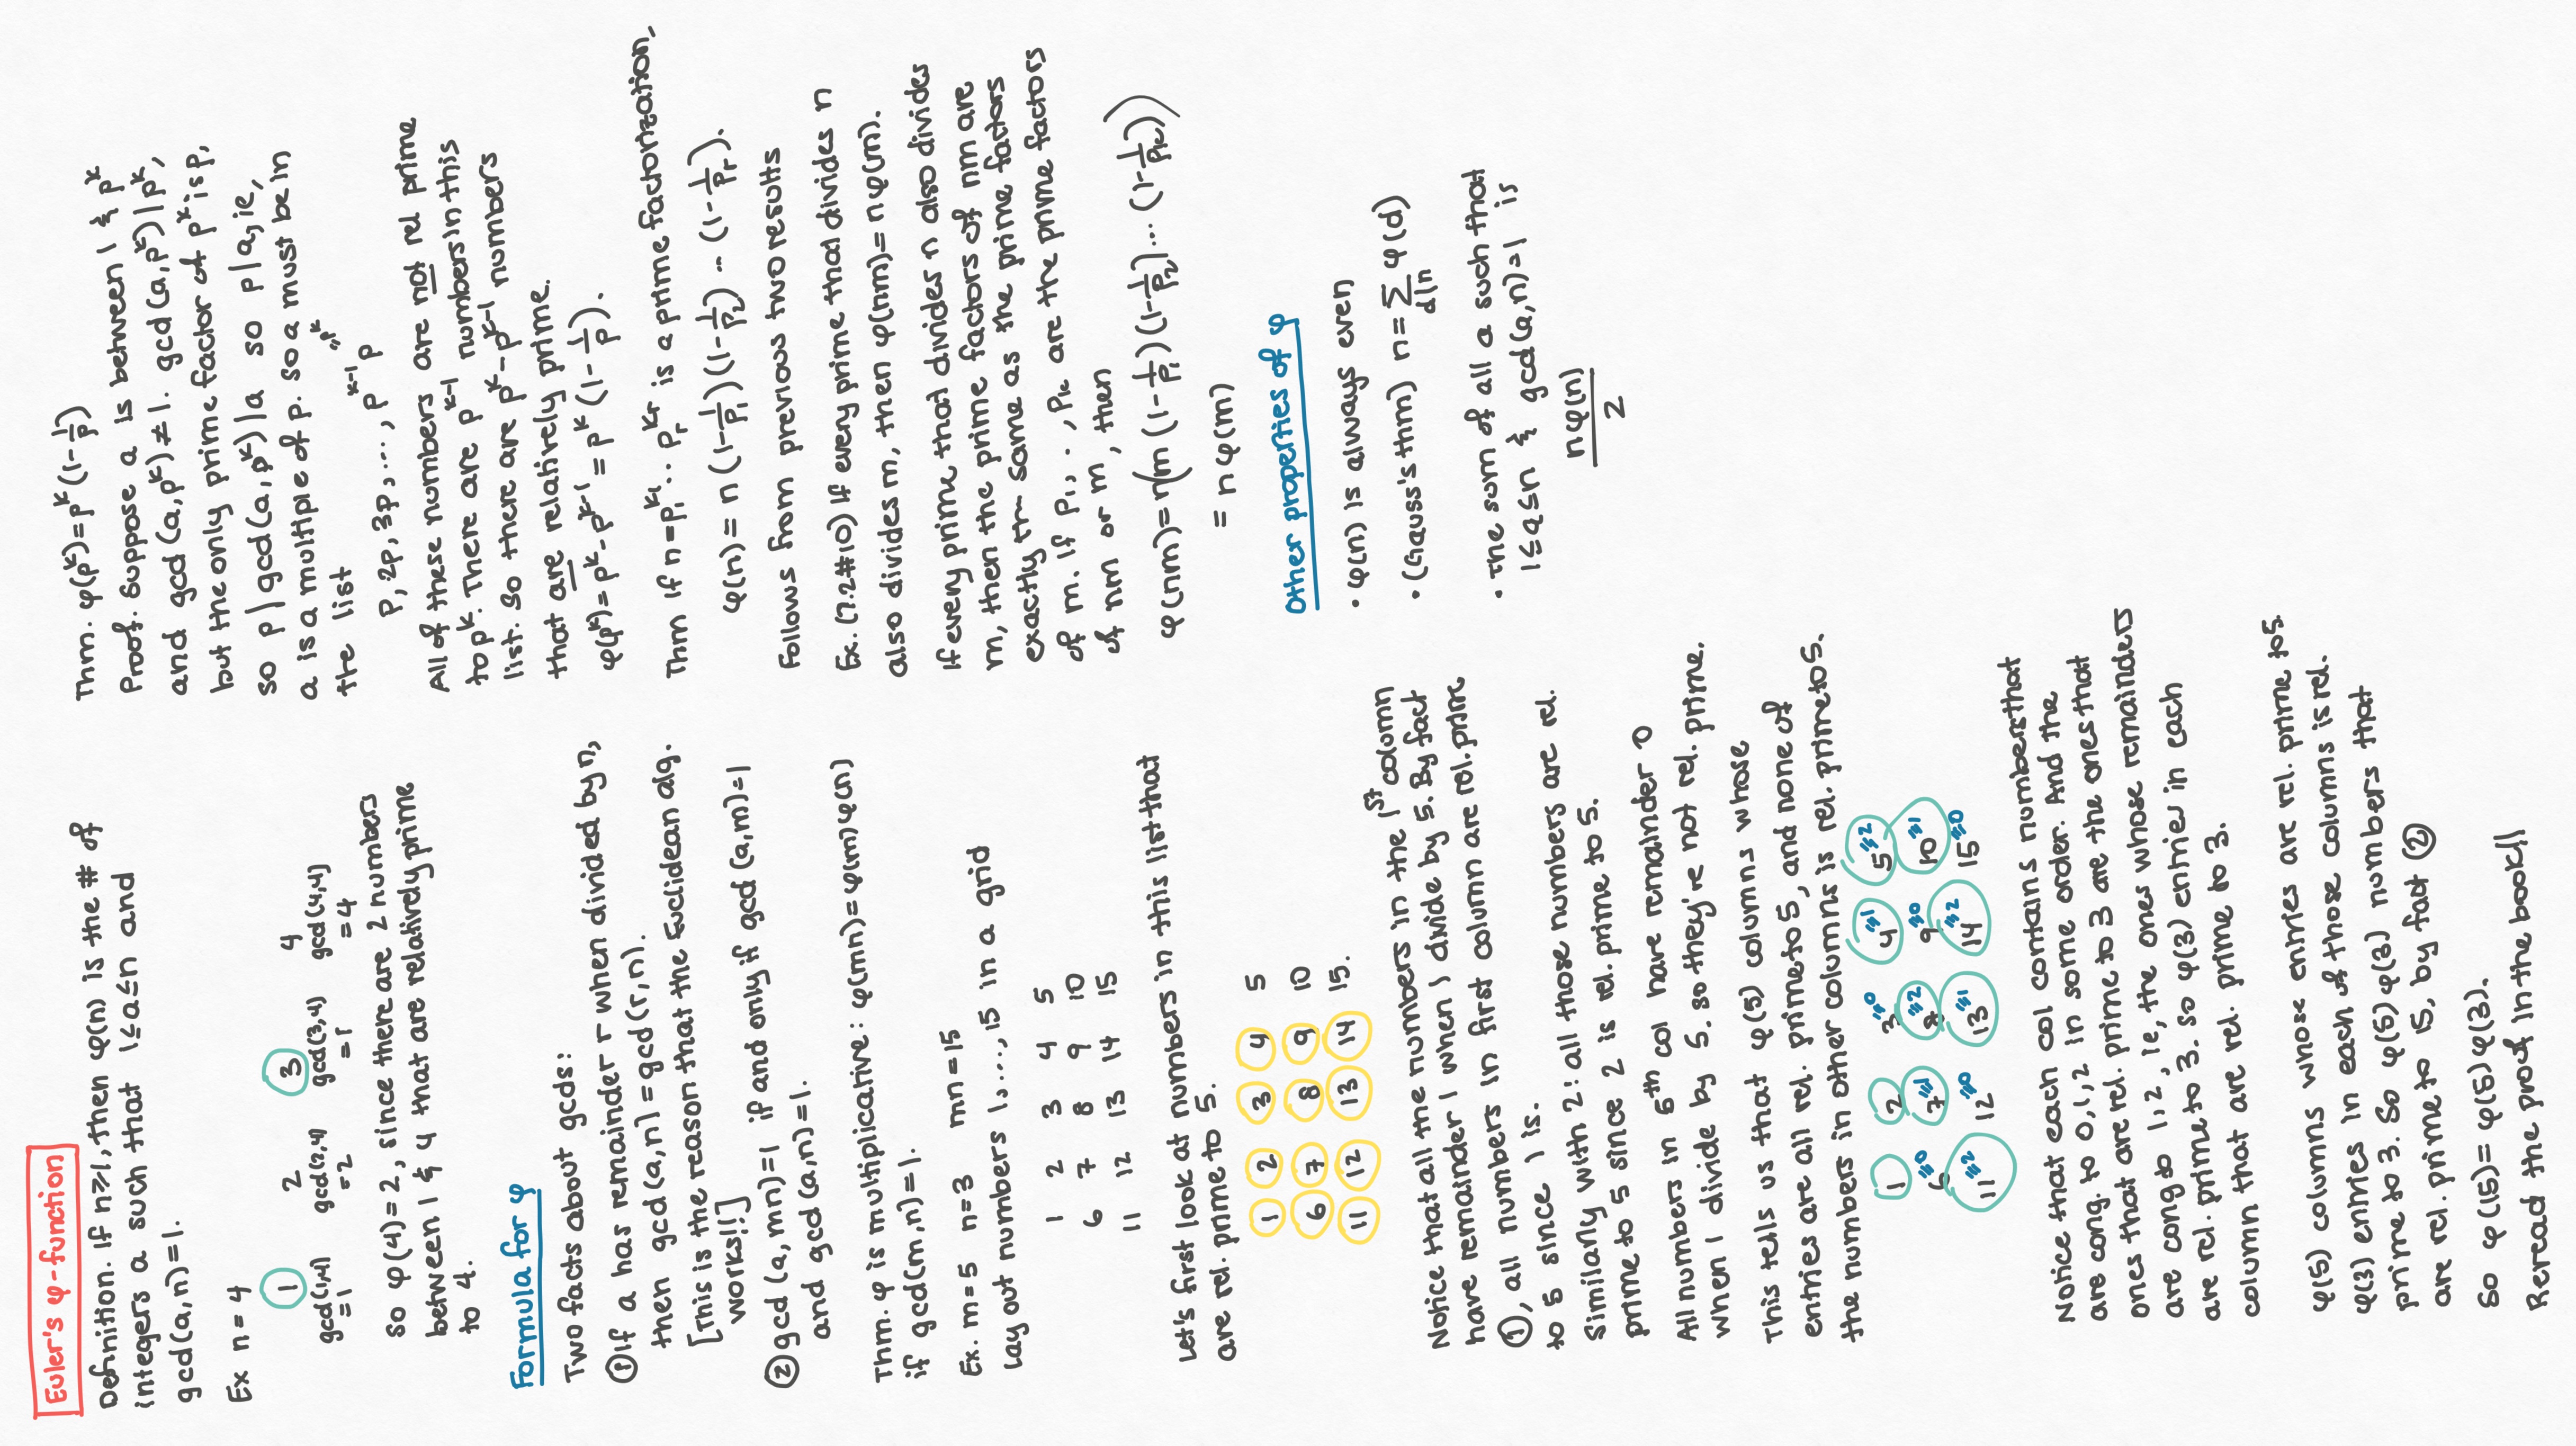 Euler's φ-function
Definition. If n≥1, then φ(n) is the # of
integers a such that 1≤a≤n and
gcd(a,n)=1.
Ex n=4
1 2 3 4
gcd(1,4) gcd(2,4) gcd(3,4) gcd(4,4)
=1 =2 =1 =4
So φ(4)=2, since there are 2 numbers
between 1 & 4 that are relatively prime
to 4.
Formula for φ
Two facts about gcds:
① If a has remainder r when divided by n,
then gcd(a,n)=gcd(r,n).
[This is the reason that the Euclidean alg.
works!!]
② gcd(a,mn)=1 if and only if gcd(a,m)=1
and gcd(a,n)=1.
Thm. φ is multiplicative: φ(mn)=φ(m)φ(n)
if gcd(m,n)=1.
Ex. m=5 n=3 mn=15
Lay out numbers 1,...,15 in a grid
1 2 3 4 5
6 7 8 9 10
11 12 13 14 15
Let's first look at numbers in this list that
are rel. prime to 5.
1 2 3 4 5
6 7 8 9 10
11 12 13 14 15.
Notice that all the numbers in the 1st column
have remainder 1 when I divide by 5. By fact
①, all numbers in first column are rel. prime
to 5 since 1 is.
Similarly with 2: all those numbers are rel.
prime to 5 since 2 is rel. prime to 5.
All numbers in 5th col have remainder 0
when I divide by 5. so they're not rel. prime.
This tells us that φ(5) columns whose
entries are all rel. prime to 5, and none of
the numbers in other columns is rel. prime to 5.
1 2 3≡0 4≡1 5≡2
6≡0 7≡1 8≡2 9≡0 10≡1
11≡2 12≡0 13≡1 14≡2 15≡0
Notice that each col contains numbers that
are cong. to 0,1,2 in some order. And the
ones that are rel. prime to 3 are the ones that
are cong to 1,2, ie, the ones whose remainders
are rel. prime to 3. So φ(3) entries in each
column that are rel. prime to 3.
φ(5) columns whose entries are rel. prime to 5.
φ(3) entries in each of those columns is rel.
prime to 3. So φ(5)φ(3) numbers that
are rel. prime to 15, by fact ②
So φ(15)=φ(5)φ(3).
Reread the proof in the book!!
Thm. φ(p^k)=p^k(1-1/p)
Proof. Suppose a is between 1 & p^k
and gcd(a,p^k)≠1. gcd(a,p^k)|p^k,
but the only prime factor of p^k is p,
so p|gcd(a,p^k)|a so p|a, ie,
a is a multiple of p. So a must be in
the list
p, 2p, 3p, ..., p^(k-1) p =p^k
All of these numbers are not rel prime
to p^k. There are p^(k-1) numbers in this
list. So there are p^k-p^(k-1) numbers
that are relatively prime.
φ(p^k)=p^k-p^(k-1)=p^k(1-1/p).
Thm If n=p₁^k₁.. pᵣ^kᵣ is a prime factorization,
φ(n)=n(1-1/p₁)(1-1/p₂)...(1-1/pᵣ).
Follows from previous two results
Ex. (7.2#10) If every prime that divides n
also divides m, then φ(nm)=nφ(m).
If every prime that divides n also divides
m, then the prime factors of nm are
exactly the same as the prime factors
of m. If p₁, . , pₖ are the prime factors
of nm or m, then
φ(nm)=n(m(1-1/p₁)(1-1/p₂)...(1-1/pₖ))
=nφ(m)
Other properties of φ
• φ(n) is always even
• (Gauss's thm) n=∑_{d|n} φ(d)
• The sum of all a such that
1≤a≤n & gcd(a,n)=1 is
nφ(n)
2